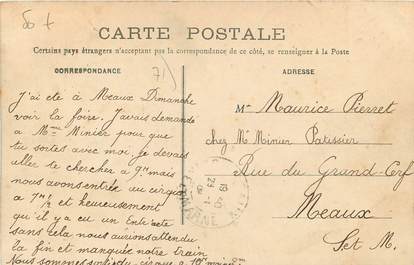 CARTE POSTALE
Certains pays étrangers n'acceptant pas la correspondance de ce côté, se renseigner à la Poste
CORRESPONDANCE
ADRESSE
J'ai été à Meaux Dimanche
voir la foire. J'avais demandé
à Mme Minier pour que
tu sortes avec moi, je devais
aller te chercher à 9h mais
nous avons entrée au cirque
à 7h ½ et heureusement
qu'il y a eu un Entr'acte
sans cela nous aurions attendu
la fin et manqué notre train
Nous sommes
Mr Maurice Pierret
chez Mr Minier Patissier
Rue du Grand-Cerf
Meaux
Set M.